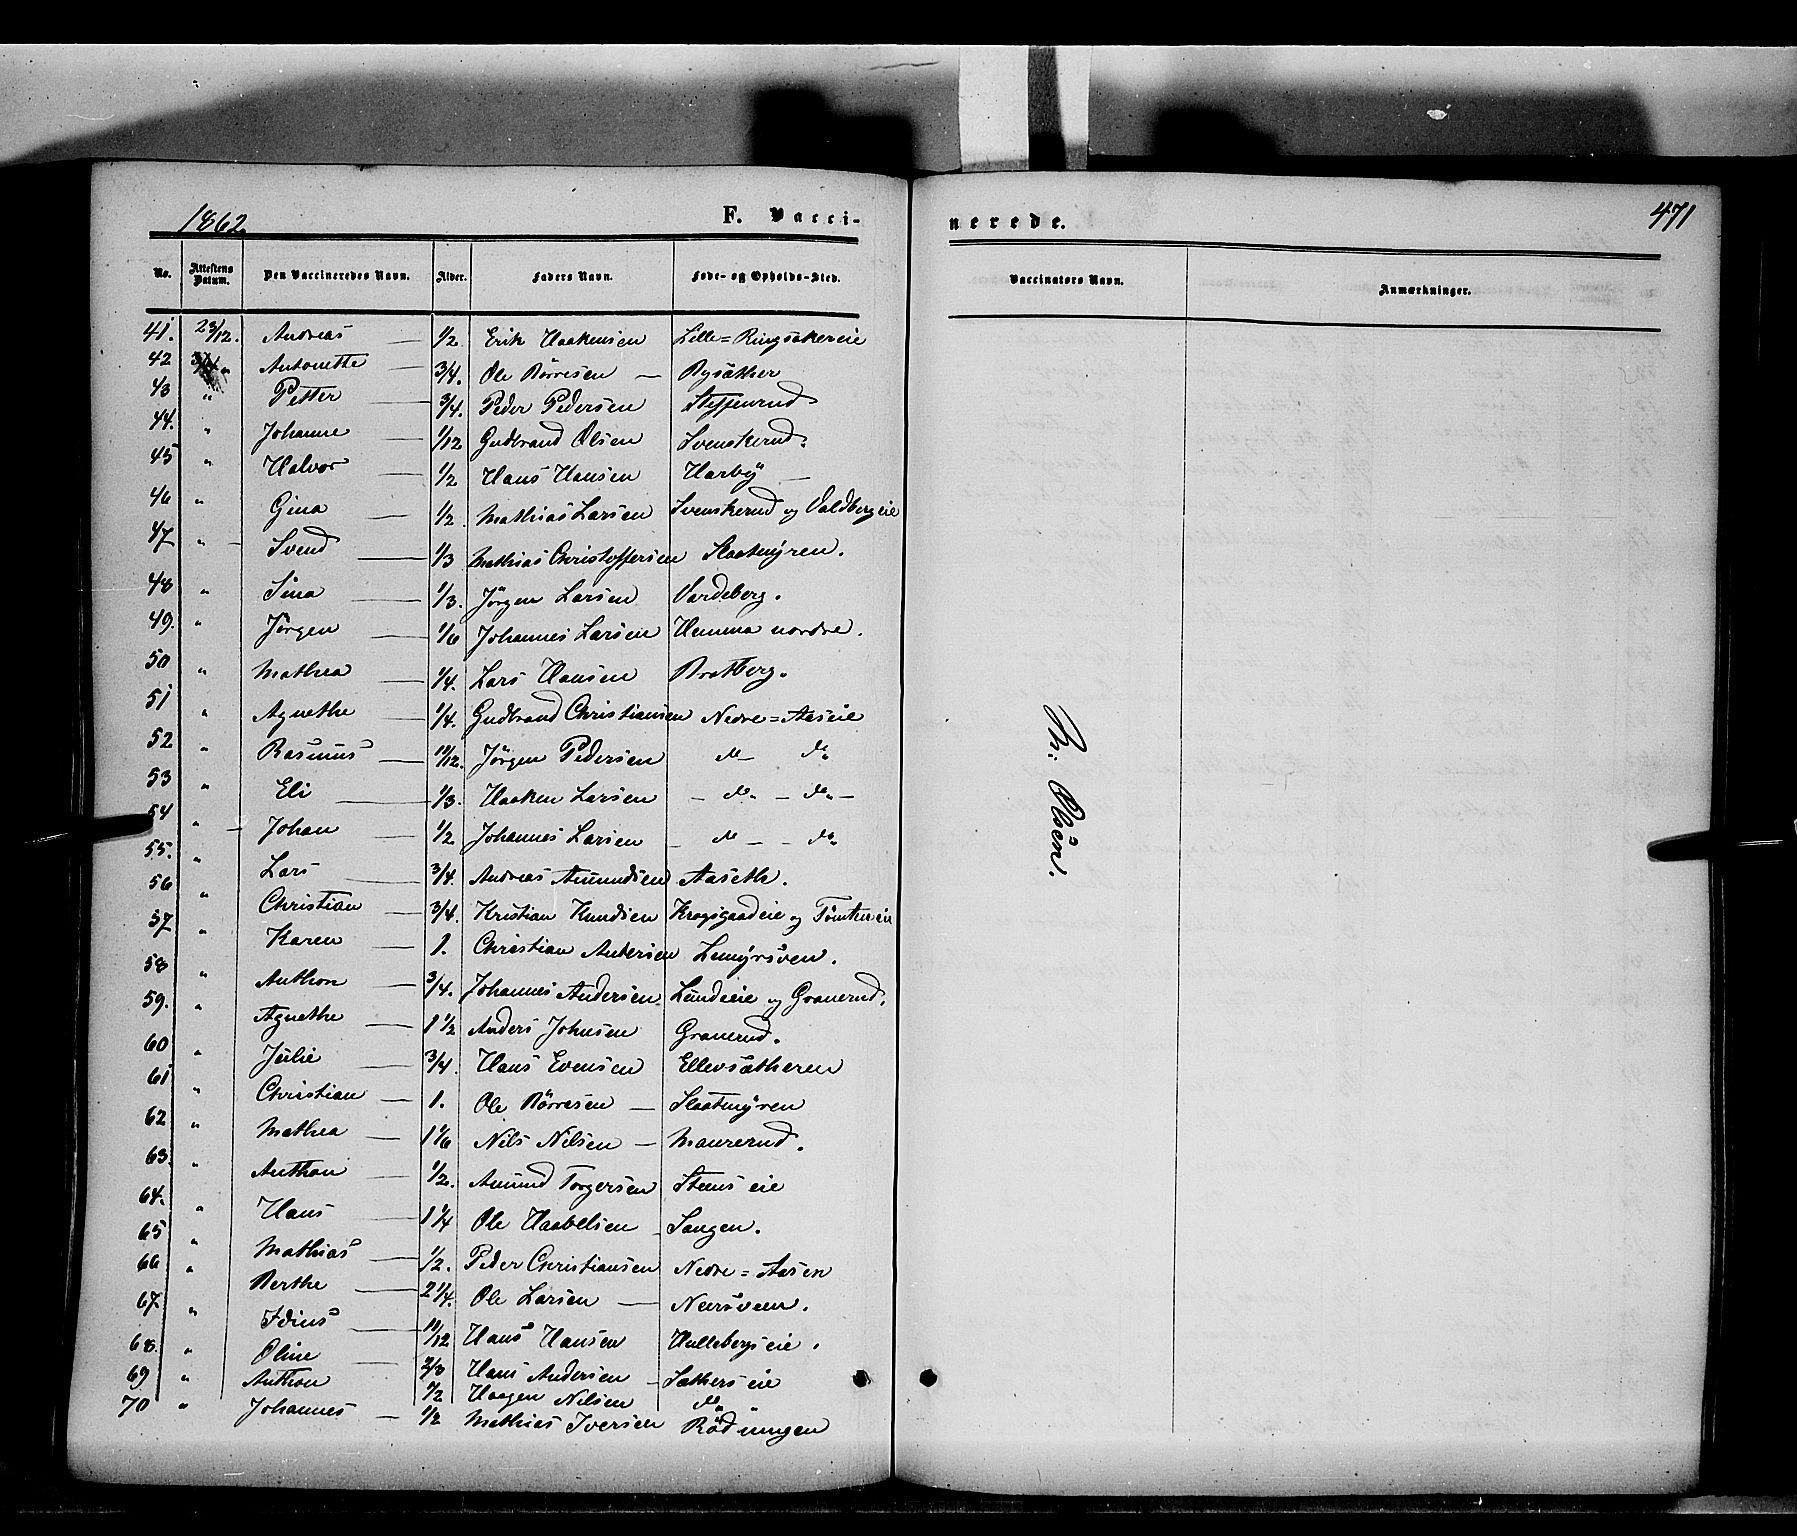 1862. F. Vacci- nerede. 471
No. Attestens Datum. Den Vaccineredes Navn. Alder. Faders Navn. Føde- og Opholds-Sted. Vaccinators Navn. Anmærkninger.
41. 23/12. Andreas — 1/2. Erik Haakensen Lille=Ringsakereie
42 " Antonette — 3/4. Ole Börresen — Rysæther
43 " Petter — 3/4. Peder Pedersen Steffenrud
44. " Johanne — 1/12 Gudbrand Olsen Svenskerud.
45 " Halvor — 1/2 Hans Hansen Harbÿ —
46 " Gina — 1/2. Mathias Larsen Svenskerud og Valdbergeie
47 " Svend — 1/3 Mathias Christoffersen Slaatmÿren.
48 " Sina — 1/3. Jörgen Larsen Vardeberg.
49. " Jörgen — 1/6 Johannes Larsen Hemma nordre.
50 " Mathea — 1/4. Lars Hansen Bratberg.
51 " Agnethe — 1/4. Gudbrand Christiansen Nedre=Aaseie
52 " Rasmus — 11/12. Jörgen Pedersen do do
53 " Eli — 1/3. Haaken Larsen — do — do —
54 " Johan — 1/2. Johannes Larsen — do — do
55. " Lars — 3/4. Andreas Amundsen Aaseth.
56 " Christian — 3/4. Kristian Knudsen Krogsgaadeie og Tömtereie
57 " Karen — 1. Christian Andersen Lemÿrsven.
58 " Anthon — 3/4. Johannes Andersen Lundeeie og Granerud.
59. " Agnethe — 1 1/2 Anders Johnsen Granerud.
60 " Julie — 3/4. Hans Evensen Ellevsætheren
61 " Christian — 1. Ole Börresen — Slaatmÿren
62 " Mathea — 1 1/6 Nils Nilsen — Maurerud.
63. " Anthon — 1/2. Amund Torgersen Stenseie
64. " Hans — 1 1/4 Ole Haavelsen — Sangen.
65 " Mathias — 1/2. Peder Christiansen Nedre=Aasen
66 " Berthe 2 1/4. Ole Larsen — Neersveen.
67. " Idius — 11/12 Hans Hansen Hullebergseie.
68. " Oline — 2/3 Hans Andersen — Sætherseie
69 " Anthon 1/2 Haagen Nilsen do
70 " Johannes — 1/2 Mathias Iversen Rödningen
Olsen.